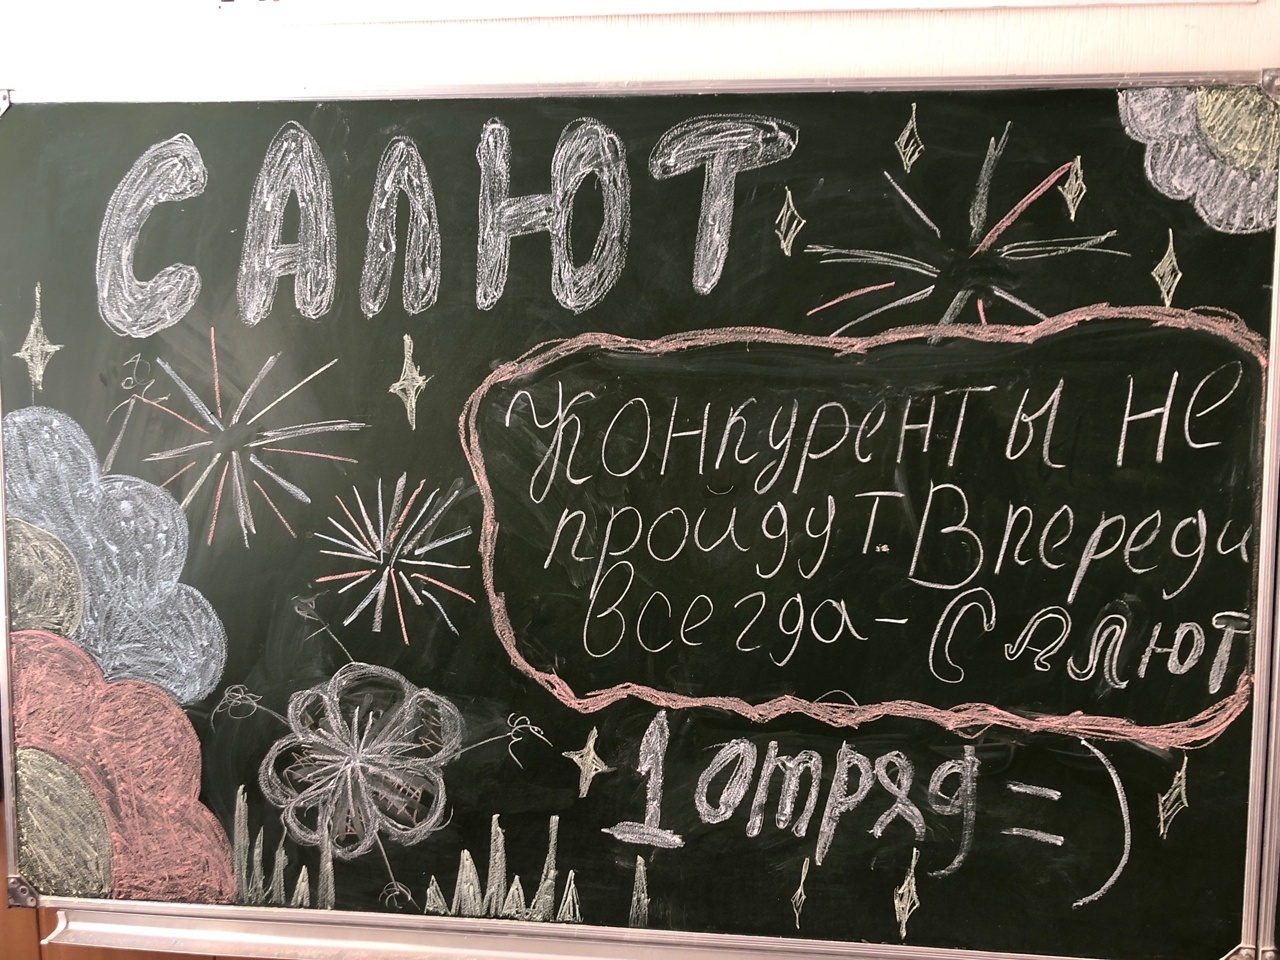 САЛЮТ
Конкуренты не
пройдут. Впереди
всегда - Салют
1 отряд =)